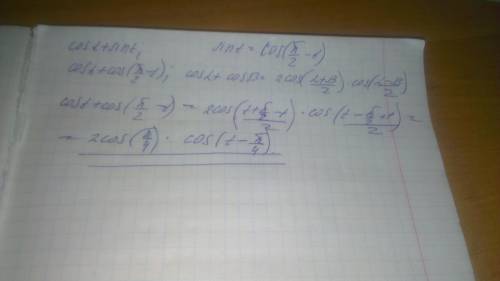 cost + sint, sint = cos(π/2 - t)
cost + cos(π/2 - t); cosα + cosβ = 2cos(α+β/2) · cos(α-β/2)
cost + cos(π/2 - t) = 2cos(t+π/2-t/2) · cos(t-π/2+t/2) =
= 2cos(π/4) · cos(t - π/4)